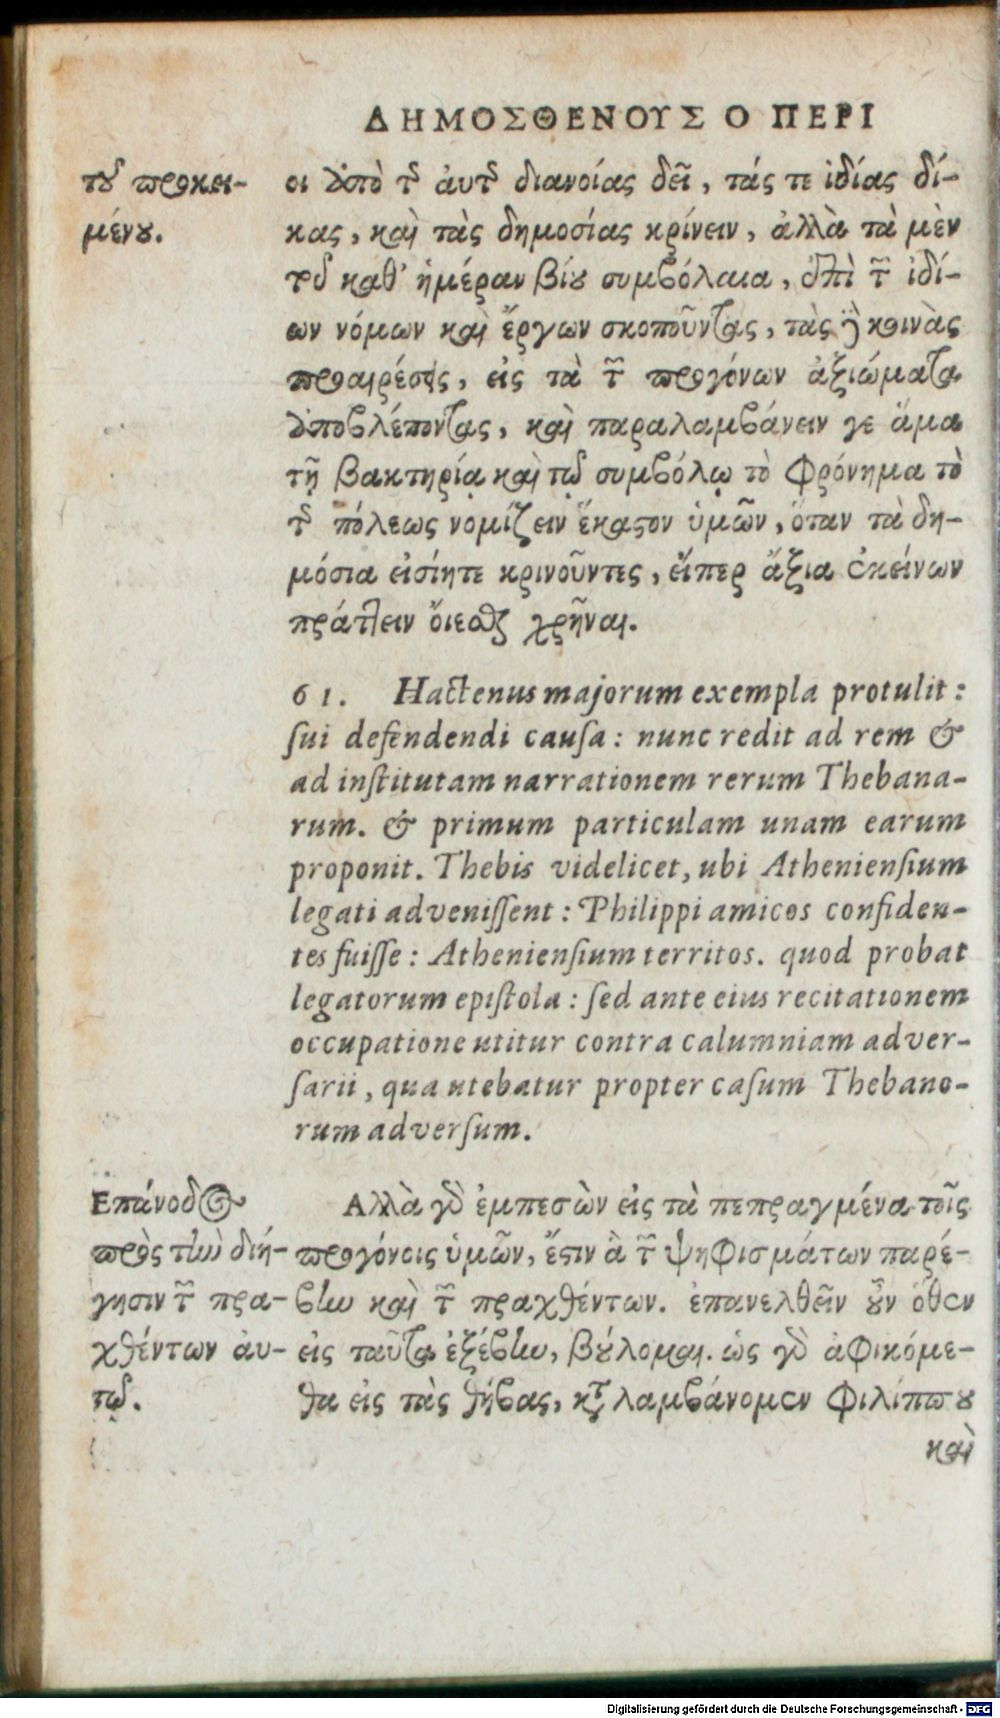 ΔΗΜΟΣΘΕΝΟΥΣ Ο ΠΕΡΙ
τοῦ προκει-
μένου.
οι ἀπὸ τῆς αὐτῆς διανοίας δεῖ, τάς τε ἰδίας δί-
κας, καὶ τὰς δημοσίας κρίνειν, ἀλλὰ τὰ μὲν
τοῦ καθ' ἡμέραν βίου συμβόλαια, ἐπὶ τῶν ἰδί-
ων νόμων καὶ ἔργων σκοποῦντας, τὰς δὲ κοινὰς
προαιρέσεις, εἰς τὰ τῶν προγόνων ἀξιώματα
ἀποβλέποντας, καὶ παραλαμβάνειν γε ἅμα
τῇ βακτηρίᾳ καὶ τῷ συμβόλῳ τὸ φρόνημα τὸ
τῆς πόλεως νομίζειν ἕκαστον ὑμῶν, ὅταν τὰ δη-
μόσια εἰσίητε κρινοῦντες, εἴπερ ἄξια ἐκείνων
πράττειν ὄιεσθε χρῆναι.
61. Hactenus majorum exempla protulit:
ſui defendendi cauſa: nunc redit ad rem &
ad inſtitutam narrationem rerum Thebana-
rum. & primum particulam unam earum
proponit. Thebis videlicet, ubi Athenienſium
legati adveniſſent: Philippi amicos confiden-
tes fuiſſe: Athenienſium territos. quod probat
legatorum epiſtola: ſed ante eius recitationem
occupatione utitur contra calumniam adver-
ſarii, qua utebatur propter caſum Thebano-
rum adverſum.
Επάνοδος
πρὸς τὴν διή-
γησιν τῶν πρα-
χθέντων αὐ-
τῷ.
Αλλὰ γὰρ ἐμπεσὼν εἰς τὰ πεπραγμένα τοῖς
προγόνοις ὑμῶν, ἔστιν ἃ τῶν ψηφισμάτων παρέ-
βην καὶ τῶν πραχθέντων. ἐπανελθεῖν οὖν ὅθεν
εἰς ταῦτα ἐξέβην, βούλομαι. ὡς γὰρ ἀφικόμε-
θα εἰς τὰς θήβας, καταλαμβάνομεν Φιλίππου
καὶ
Digitalisierung gefördert durch die Deutsche Forschungsgemeinschaft - DFG